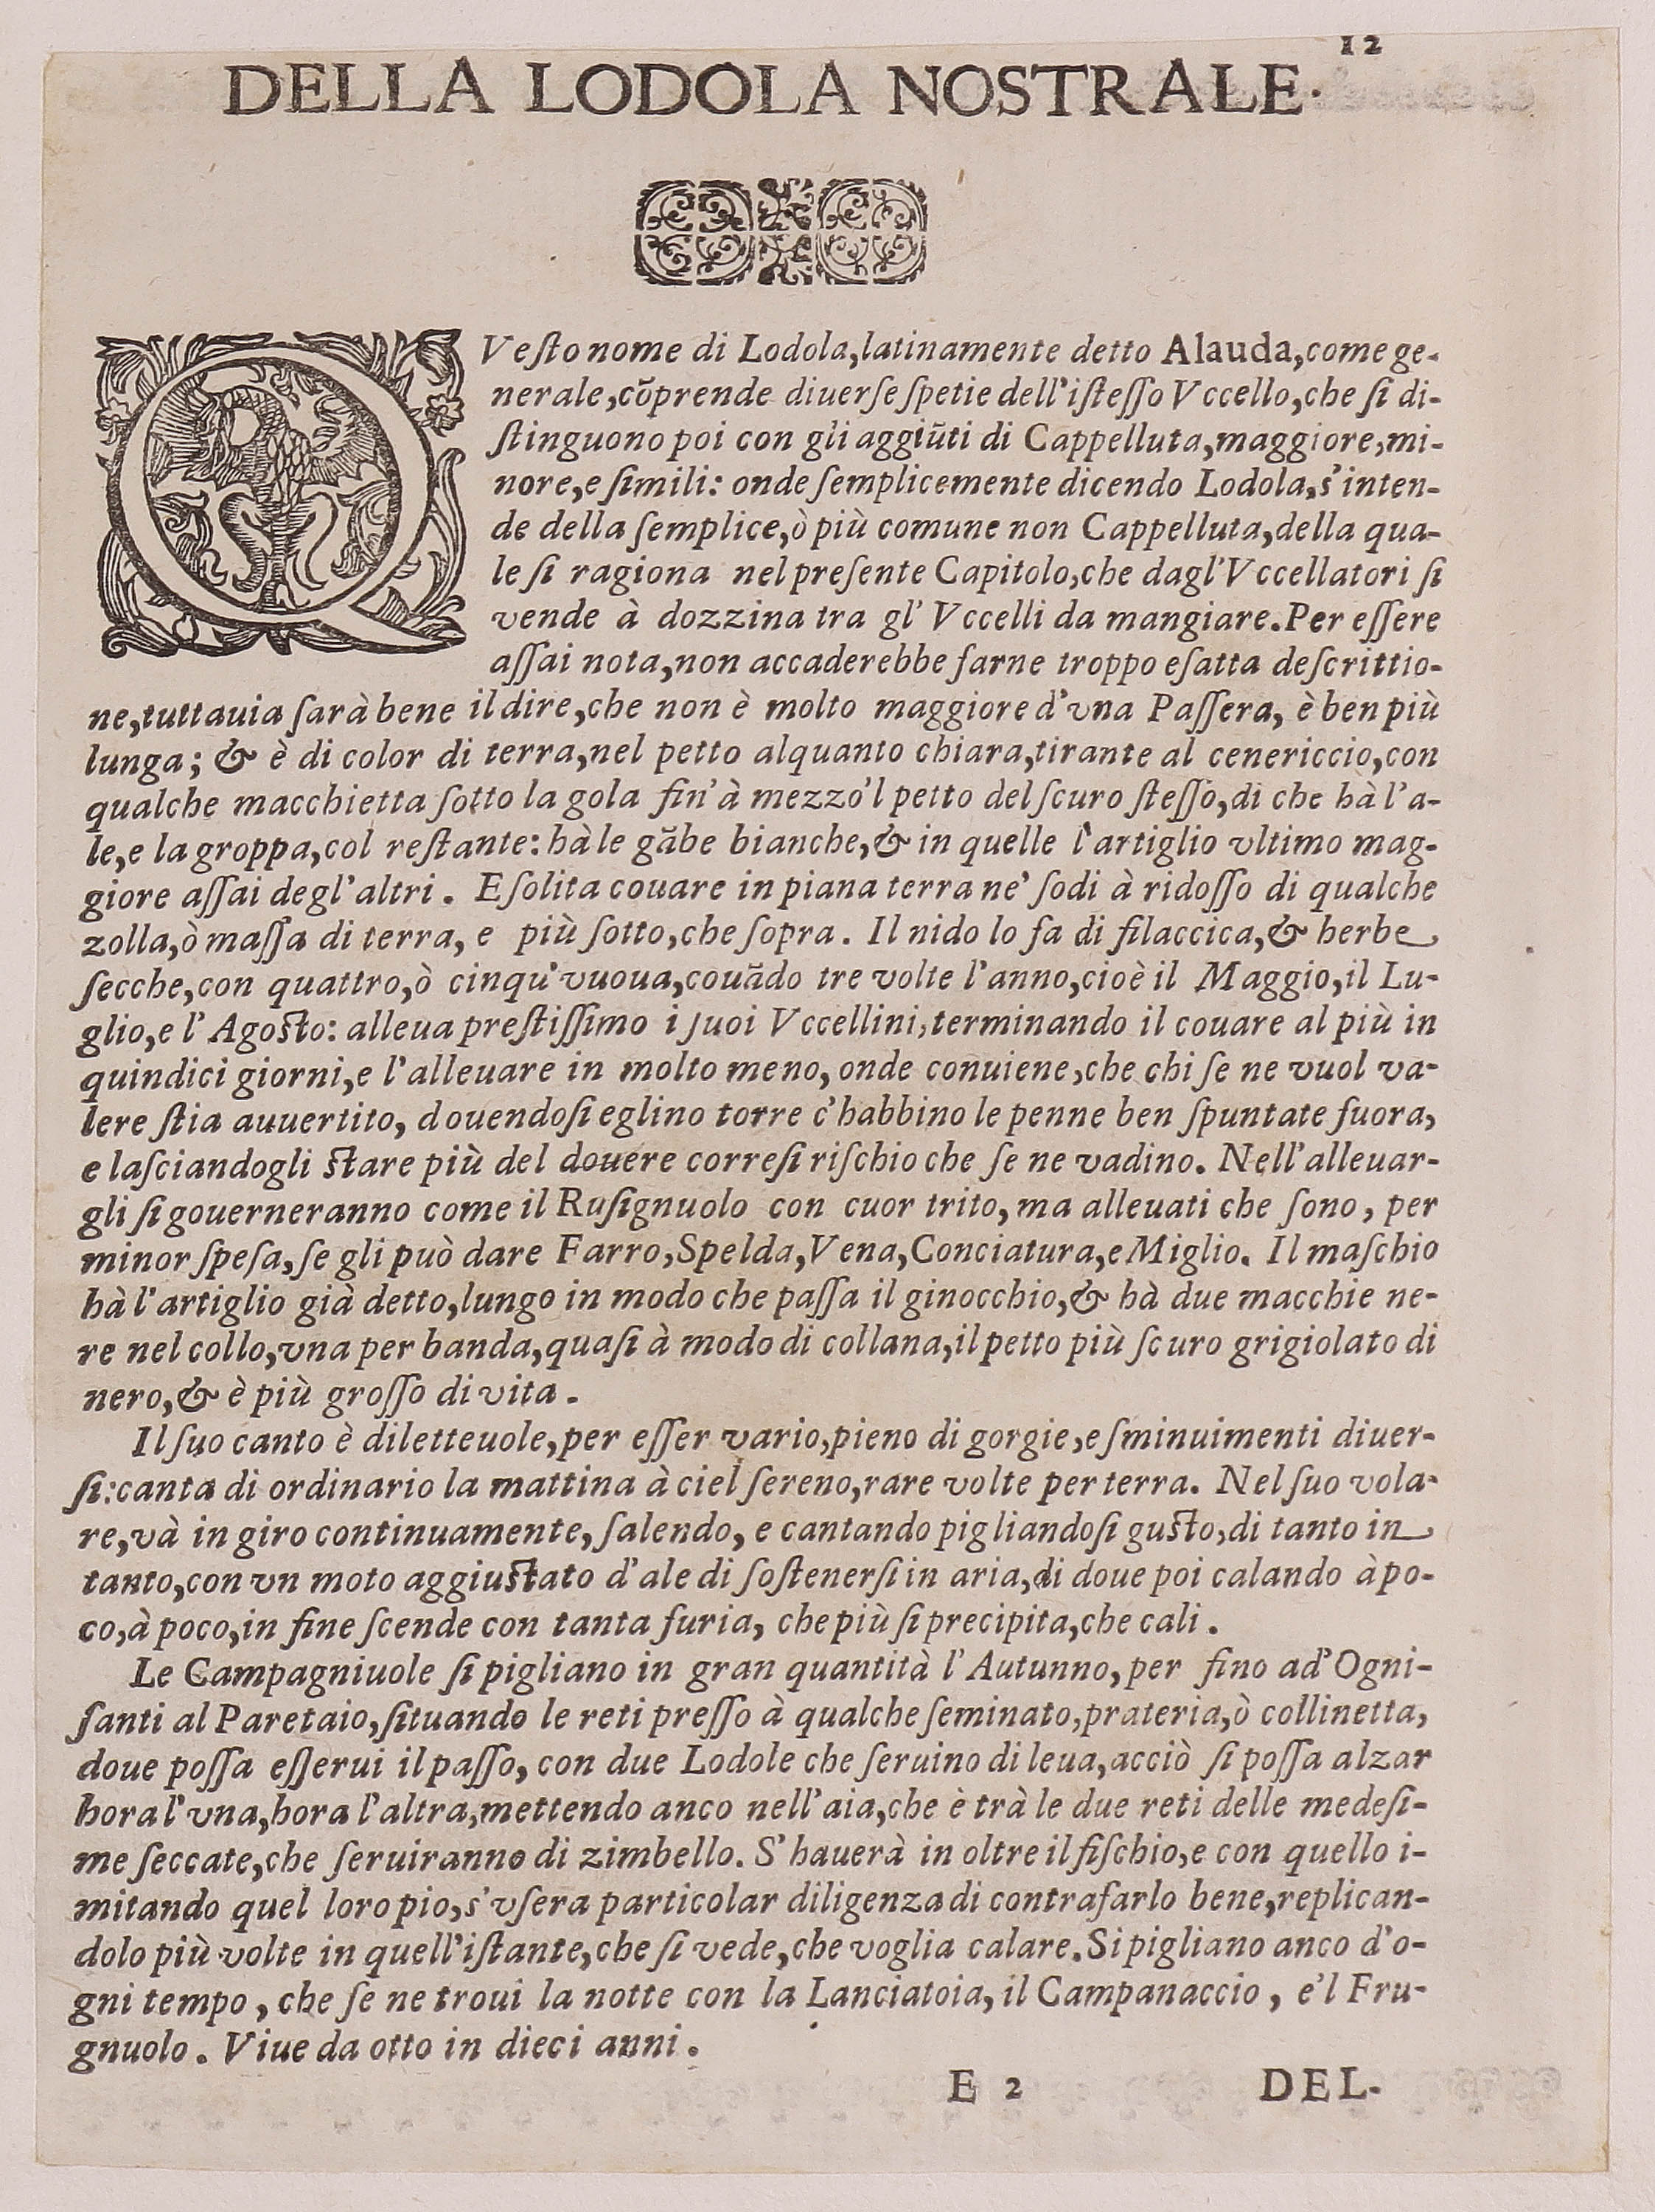 12
DELLA LODOLA NOSTRALE.
QVeſto nome di Lodola, latinamente detto Alauda, come ge-
nerale, cõprende diuerſe ſpetie dell'iſteſſo Vccello, che ſi di-
ſtinguono poi con gli aggiũti di Cappelluta, maggiore, mi-
nore, e ſimili: onde ſemplicemente dicendo Lodola, s'inten-
de della ſemplice, ò più comune non Cappelluta, della qua-
le ſi ragiona nel preſente Capitolo, che dagl'Vccellatori ſi
vende à dozzina tra gl' Vccelli da mangiare. Per eſſere
aſſai nota, non accaderebbe farne troppo eſatta deſcrittio-
ne, tuttauia ſarà bene il dire, che non è molto maggiore d'vna Paſſera, è ben più
lunga; & è di color di terra, nel petto alquanto chiara, tirante al cenericcio, con
qualche macchietta ſotto la gola fin'à mezzo'l petto del ſcuro ſteſſo, di che hà l'a-
le, e la groppa, col reſtante: hà le gãbe bianche, & in quelle l'artiglio vltimo mag-
giore aſſai degl'altri. E ſolita couare in piana terra ne' ſodi à ridoſſo di qualche
zolla, ò maſſa di terra, e più ſotto, che ſopra. Il nido lo fa di filaccica, & herbe
ſecche, con quattro, ò cinqu'vuoua, couãdo tre volte l'anno, cioè il Maggio, il Lu-
glio, e l'Agoſto: alleua preſtiſſimo i ſuoi Vccellini, terminando il couare al più in
quindici giorni, e l'alleuare in molto meno, onde conuiene, che chi ſe ne vuol va-
lere ſtia auuertito, douendoſi eglino torre c'habbino le penne ben ſpuntate fuora,
e laſciandogli ſtare più del douere correſi riſchio che ſe ne vadino. Nell'alleuar-
gli ſi gouerneranno come il Ruſignuolo con cuor trito, ma alleuati che ſono, per
minor ſpeſa, ſe gli può dare Farro, Spelda, Vena, Conciatura, e Miglio. Il maſchio
hà l'artiglio già detto, lungo in modo che paſſa il ginocchio, & hà due macchie ne-
re nel collo, vna per banda, quaſi à modo di collana, il petto più ſcuro grigiolato di
nero, & è più groſſo di vita.
Il ſuo canto è diletteuole, per eſſer vario, pieno di gorgie, e ſminuimenti diuer-
ſi: canta di ordinario la mattina à ciel ſereno, rare volte per terra. Nel ſuo vola-
re, và in giro continuamente, ſalendo, e cantando pigliandoſi guſto, di tanto in
tanto, con vn moto aggiuſtato d'ale di ſoſtenerſi in aria, di doue poi calando à po-
co, à poco, in fine ſcende con tanta furia, che più ſi precipita, che cali.
Le Campagniuole ſi pigliano in gran quantità l'Autunno, per fino ad'Ogni-
ſanti al Paretaio, ſituando le reti preſſo à qualche ſeminato, prateria, ò collinetta,
doue poſſa eſſerui il paſſo, con due Lodole che ſeruino di leua, acciò ſi poſſa alzar
hora l'vna, hora l'altra, mettendo anco nell'aia, che è trà le due reti delle medeſi-
me ſeccate, che ſeruiranno di zimbello. S'hauerà in oltre il fiſchio, e con quello i-
mitando quel loro pio, s'vſera particolar diligenza di contrafarlo bene, replican-
dolo più volte in quell'iſtante, che ſi vede, che voglia calare. Si pigliano anco d'o-
gni tempo, che ſe ne troui la notte con la Lanciatoia, il Campanaccio, e'l Fru-
gnuolo. Viue da otto in dieci anni.
E 2 DEL-